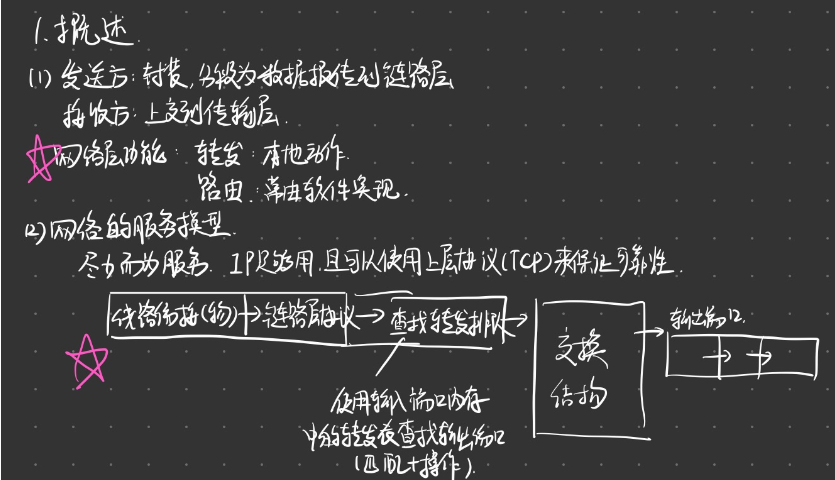 1.概述.
(1)发送方:封装,分段为数据报传到链路层
接收方:上交到传输层.
网络层功能:转发:本地动作.
路由:常由软件实现.
(2)网络的服务模型.
尽力而为服务.IP足够用.且可以使用上层协议(TCP)来保证可靠性.
线路端接(物)→链路层协议→查找转发排队→
交换
结构
输出端口.
使用输入端口内存
中的转发表查找输出端口
(匹配+操作).